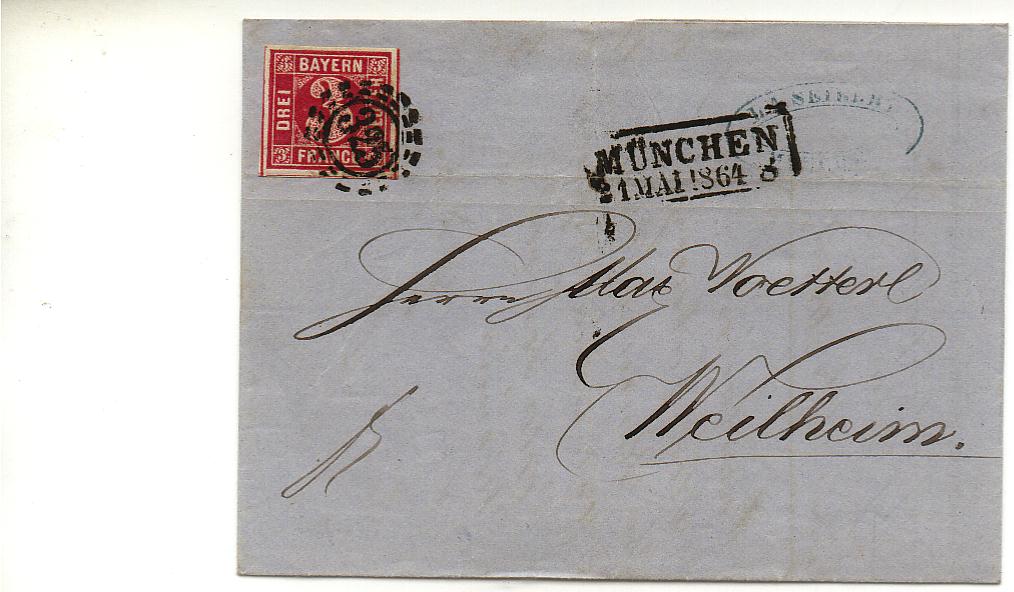 BAYERN
DREI
325
MÜNCHEN
21 MAI 1864 8
Herrn Max Voetterl
Weilheim.